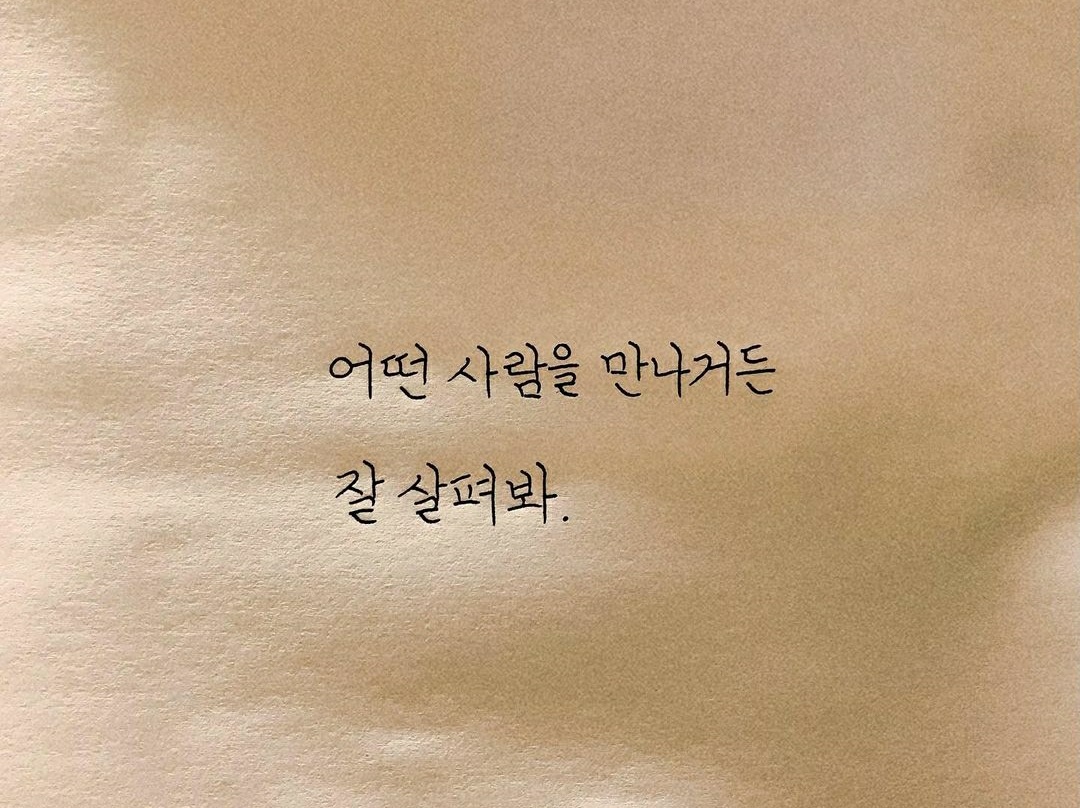 어떤 사람을 만나거든
잘 살펴봐.